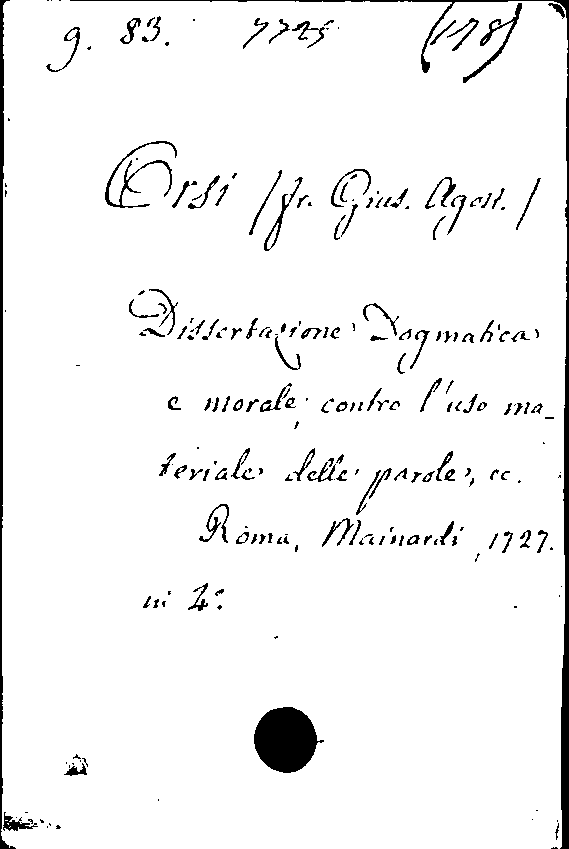 g. 83. 7725 (178)
Orsi /fr. Gius. Agost./
Dissertazione Dogmatica
e morale, contro l'uso ma-
teriale delle parole, ec.
Roma, Mainardi, 1727.
in 4°.